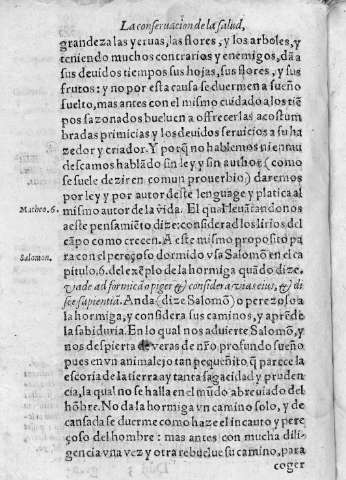 La conseruacion de la salud,
grandeza las yeruas, las flores, y los arboles, y
teniendo muchos contrarios y enemigos, dã a
sus deuidos tiempos sus hojas, sus flores, y sus
frutos: y no por esta causa se duermen a sueño
suelto, mas antes con el mismo cuidado a los tiẽ
pos sazonados bueluen a offrecer las acostum
bradas primicias y los deuidos seruicios a su ha
zedor y criador. Y porq̃ no hablemos ni enmu
descamos hablãdo sin ley y sin author (como
se suele dezir en comun prouerbio) daremos
por ley y por autor deste lenguage y platica al
Matheo. 6. mismo autor de la vida. El qual leuãtandonos
a este pensamiẽto dize: considerad los lirios del
cãpo como crecen. A este mismo proposito pa
Salomon. ra con el pereçoso dormido vsa Salomõ en el ca
pitulo. 6. del exẽplo de la hormiga quãdo dize.
vade ad formicã o piger & considera vias eius, & di
sce sapientiã. Anda (dize Salomõ) o perezoso a
la hormiga, y considera sus caminos, y aprẽde
la sabiduria. En lo qual nos aduierte Salomõ, y
nos despierta de veras de nr̃o profundo sueño
pues en vn animalejo tan pequeñito, q̃ parece la
escoria de la tierra ay tanta sagacidad y pruden
cia, la qual no se halla en el mũdo abreuiado del
hõbre. No da la hormiga vn camino solo, y de
cansada se duerme como haze el incauto y pere
çoso del hombre: mas antes con mucha dili-
gencia vna vez y otra rebuelue su camino, para
coger